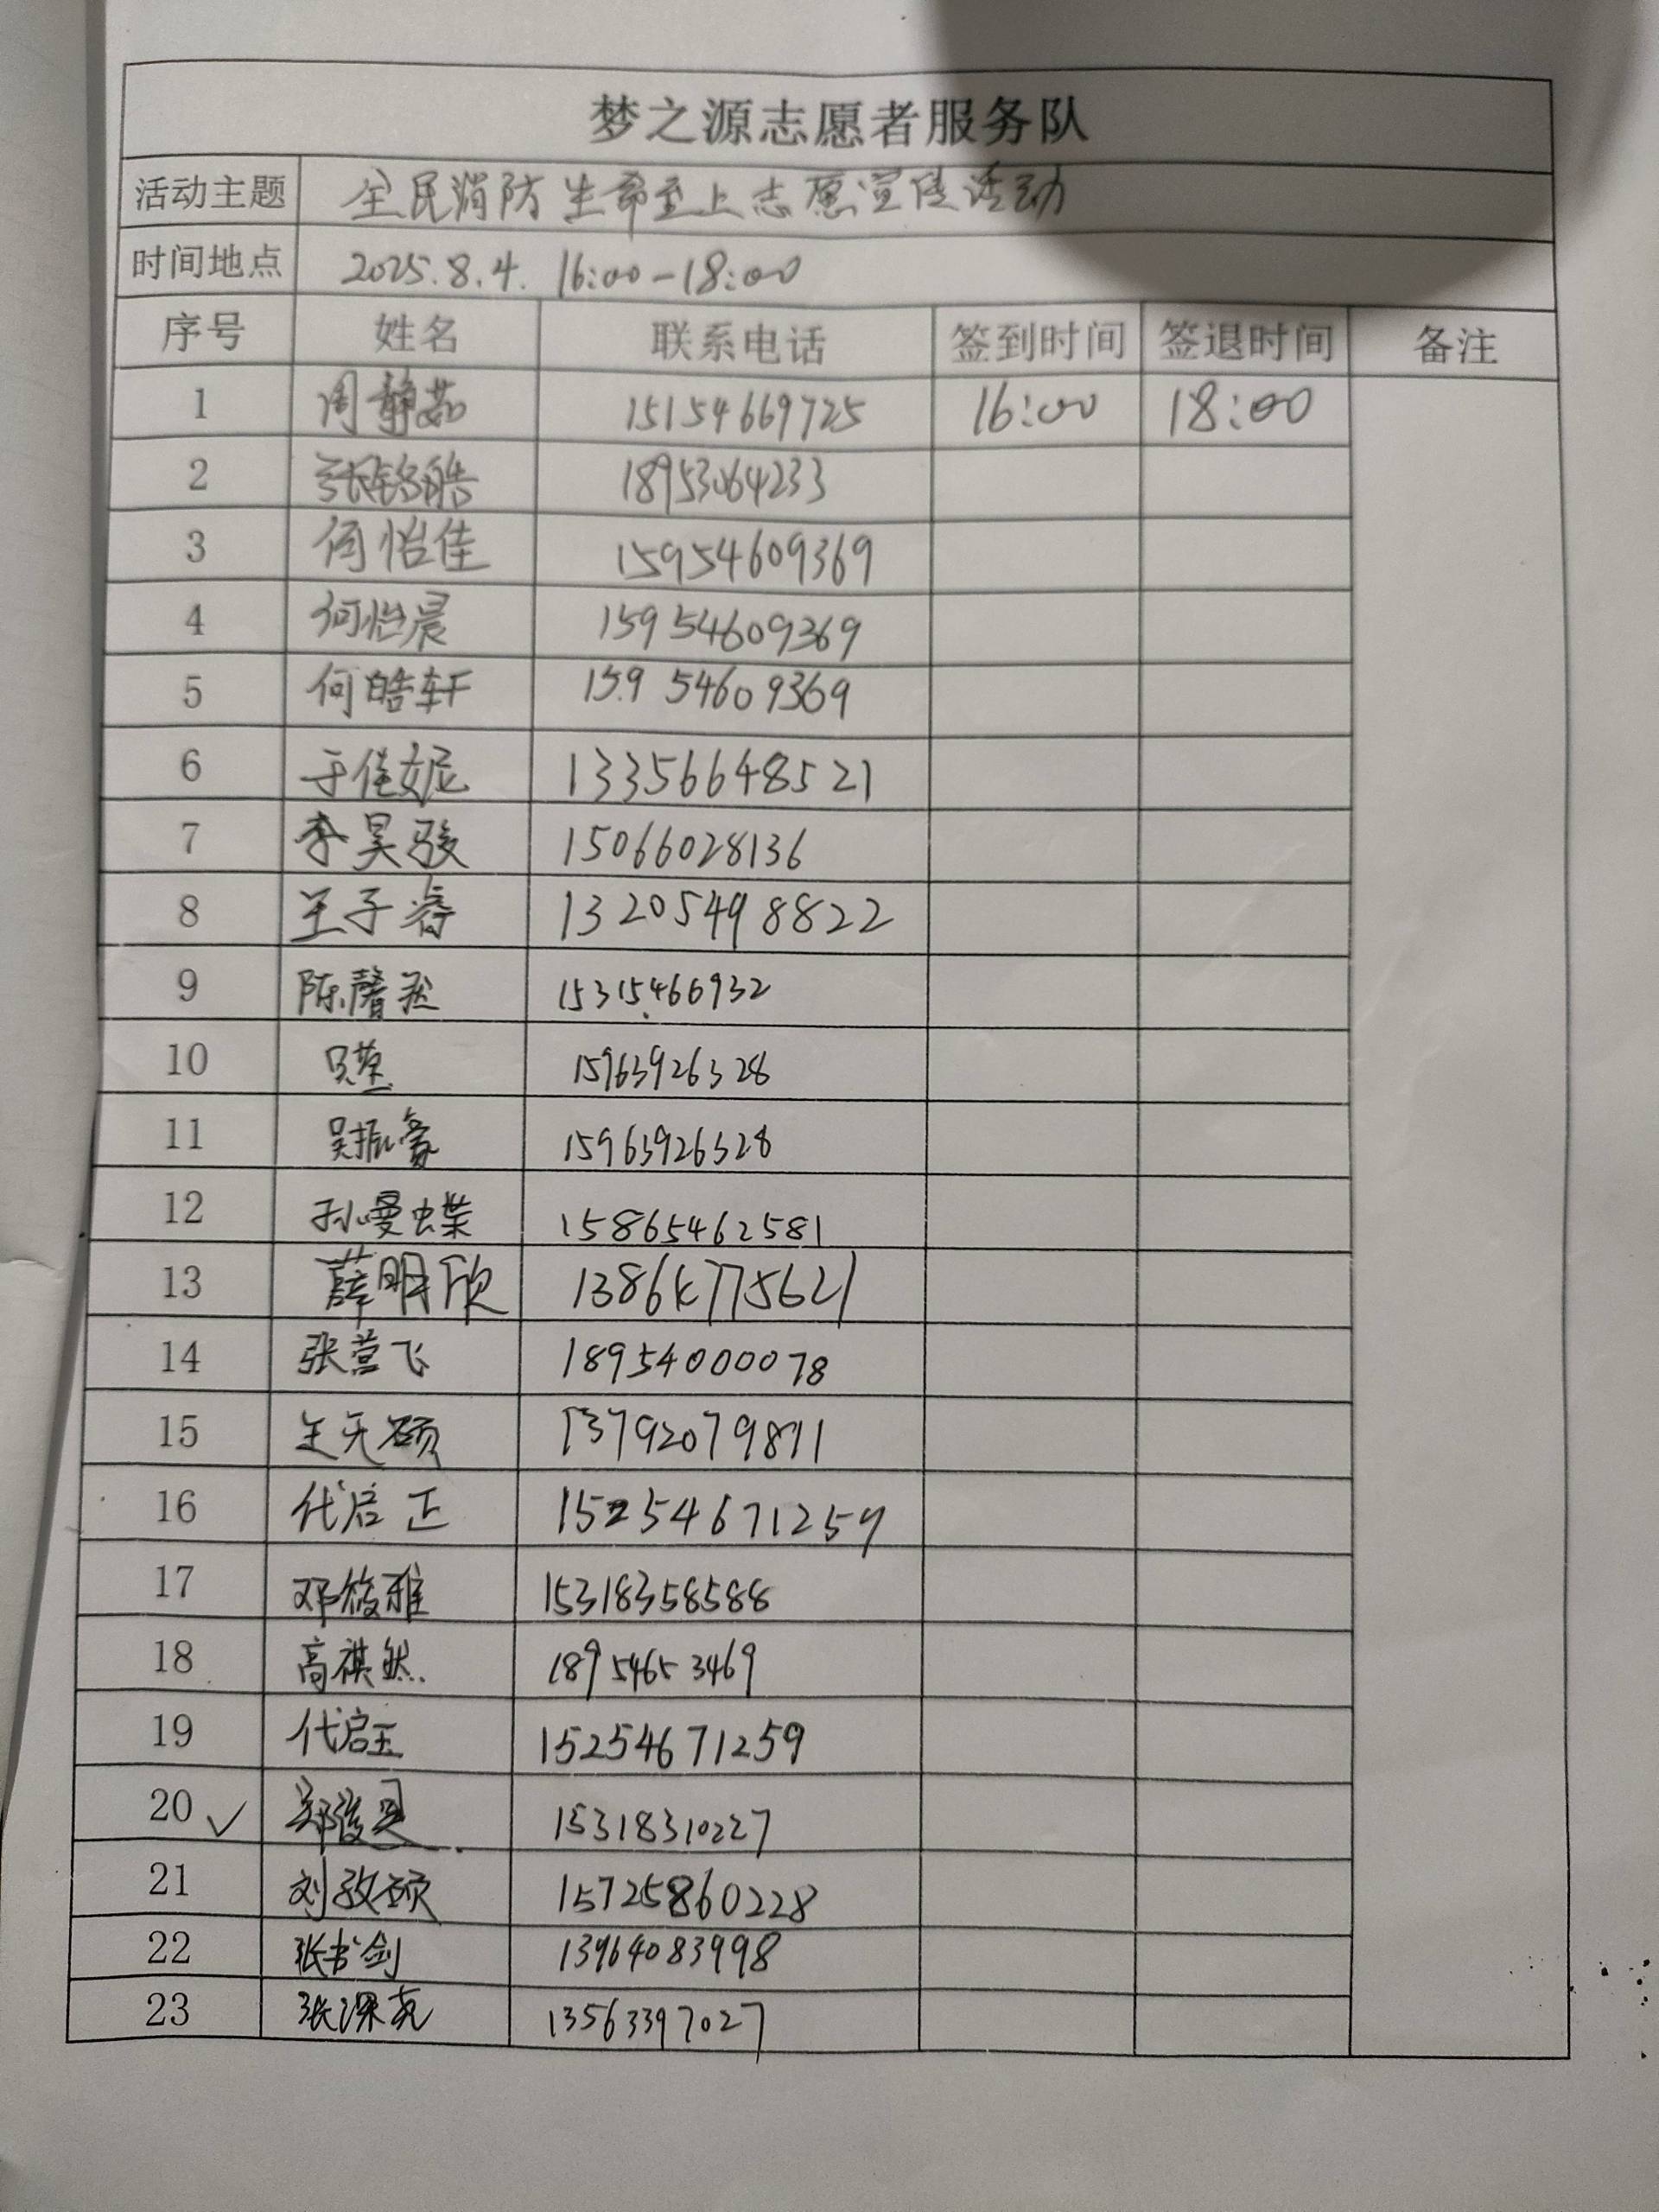 梦之源志愿者服务队
活动主题 全民消防生命至上志愿宣传活动
时间地点 2025.8.4. 16:00-18:00
序号 姓名 联系电话 签到时间 签退时间 备注
1 周静茹 15154669725 16:00 18:00
2 张铭皓 18953064233
3 何怡佳 15954609369
4 何怡晨 15954609369
5 何皓轩 15954609369
6 于佳妮 13356648521
7 李昊骏 15066028136
8 王子睿 13205498822
9 陈馨 15315466932
10 15963926328
11 吴振豪 15963926328
12 孙曼蝶 15865462581
13 薛明欣 13864775621
14 张营飞 18954000078
15 王天硕 13792079871
16 代启正 15254671259
17 邓筱雅 15318358588
18 高祺然 18954653469
19 代启玉 15254671259
20 ✓ 郑俊 15318310227
21 刘致硕 15725860228
22 张书剑 13964083998
23 张深 13563397027